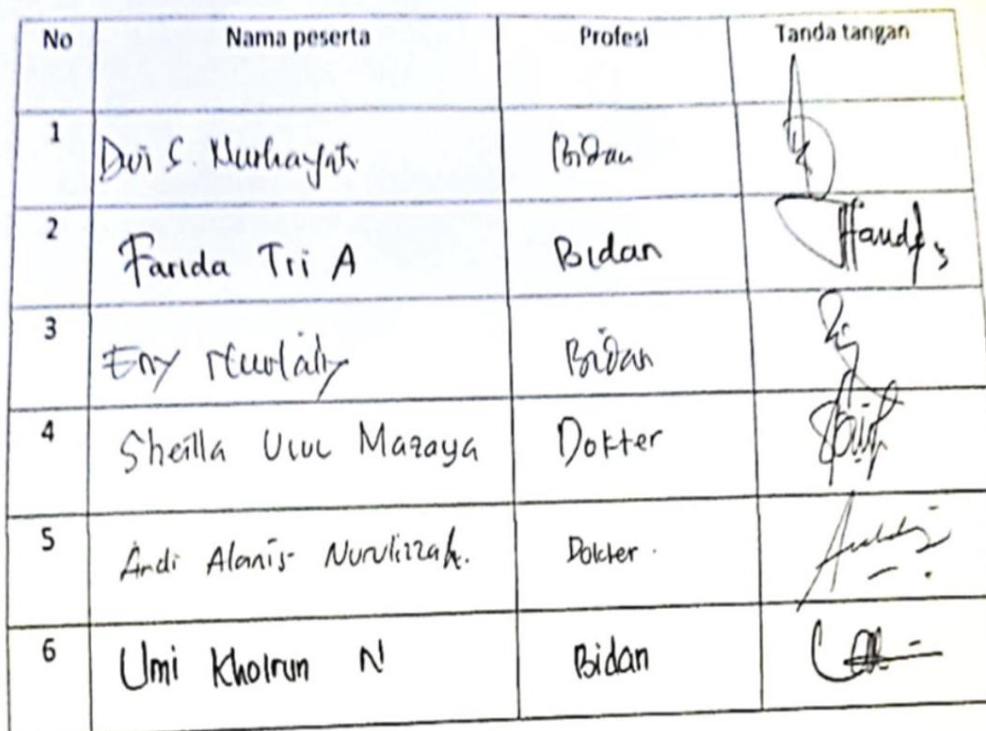 No Nama peserta Profesi Tanda tangan
1 Dwi S. Nurhayati Bidan
2 Farida Tri A Bidan
3 Eny Nurlaily Bidan
4 Sheilla Ulul Mazaya Dokter
5 Andi Alanis Nurulizzah. Dokter.
6 Umi Khoirun N Bidan